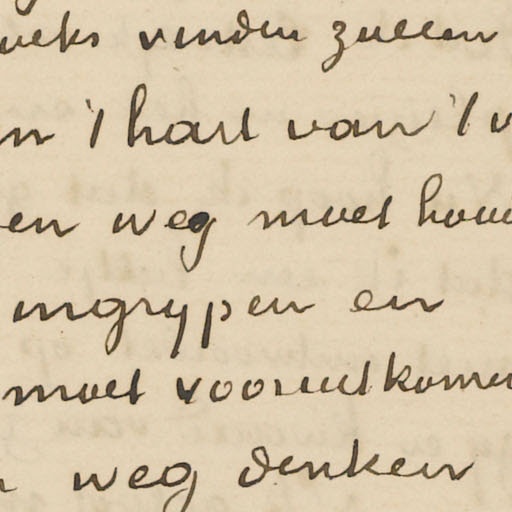 vinden zullen
't hart van 't
en weg moet
ingrypen en
moet vooruitkomen
weg denken